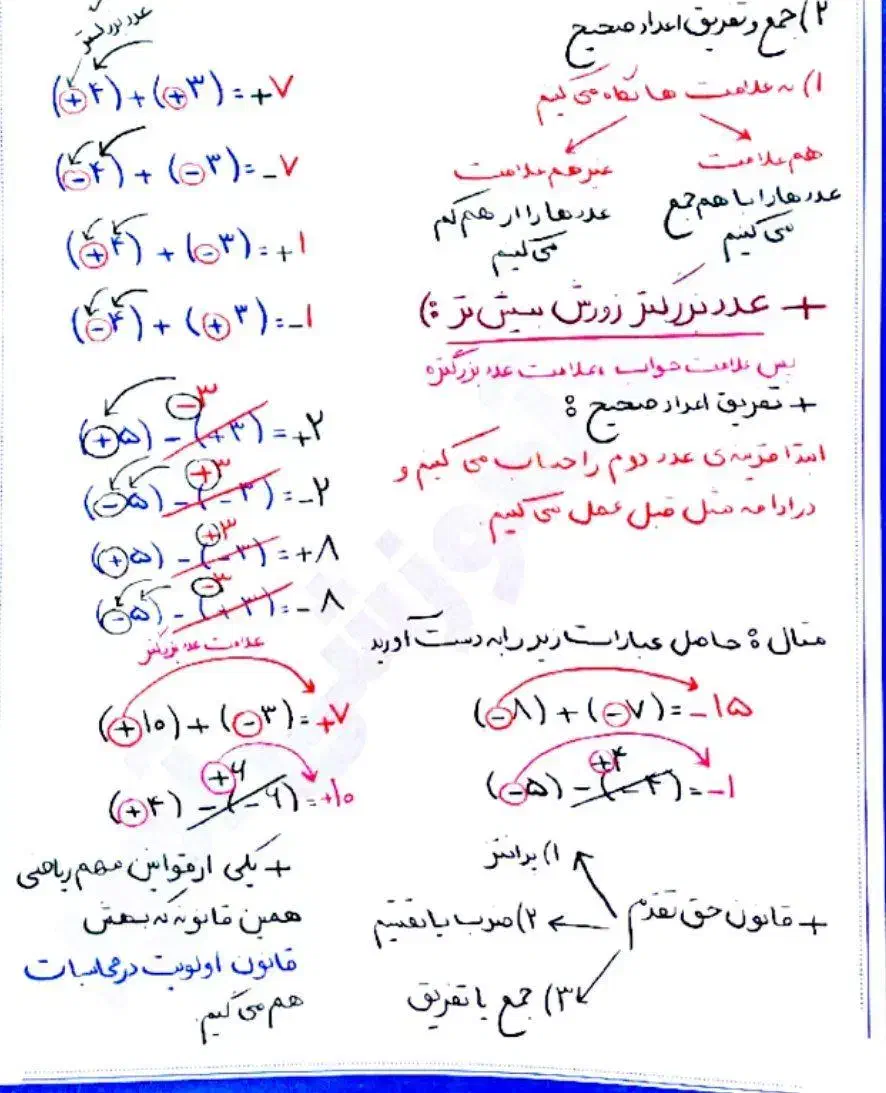 ۲) جمع و تفریق اعداد صحیح
۱) به علامت ها نگاه می کنیم
هم علامت
عددها را با هم جمع
می کنیم
غیر هم علامت
عددها را از هم کم
می کنیم
+ عدد بزرگتر زورش بیش تر :)
پس علامت جواب ، علامت عدد بزرگتره
+ تفریق اعداد صحیح :
ابتدا قرینه ی عدد دوم را حساب می کنیم و
در ادامه مثل قبل عمل می کنیم.
عدد بزرگتر
(+۴) + (+۳) = +۷
(-۴) + (-۳) = -۷
(+۴) + (-۳) = +۱
(-۴) + (+۳) = -۱
-۳
(+۵) - (+۳) = +۲
+۳
(-۵) - (-۳) = -۲
+۳
(+۵) - (-۳) = +۸
-۳
(-۵) - (+۳) = -۸
مثال : حاصل عبارات زیر را به دست آورید
(-۸) + (-۷) = -۱۵
+۴
(-۵) - (-۴) = -۱
علامت عدد بزرگتر
(+۱۰) + (-۳) = +۷
+۶
(+۴) - (-۶) = +۱۰
+ قانون حق تقدم
۱) پرانتز
۲) ضرب یا تقسیم
۳) جمع یا تفریق
+ یکی از قوانین مهم ریاضی
همین قانونه که بهش
قانون اولویت در محاسبات
هم می گیم.